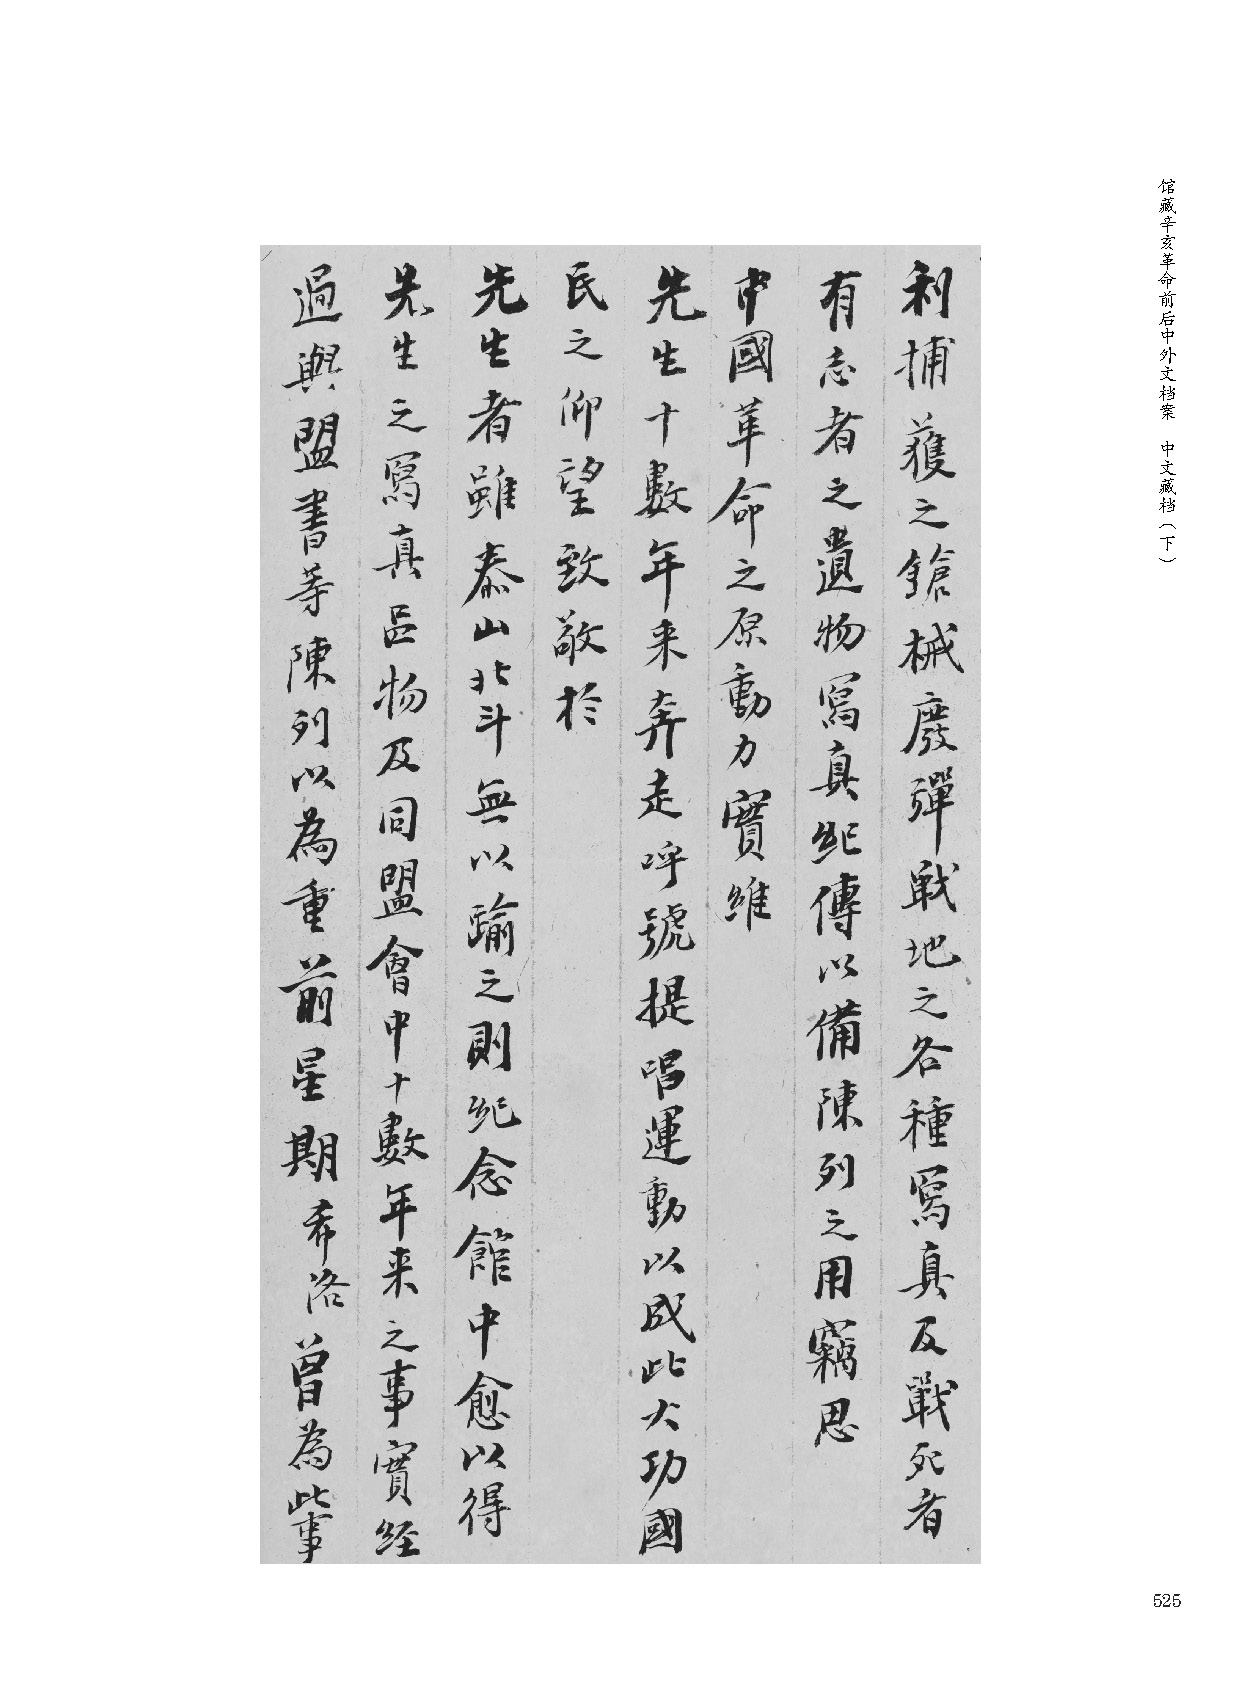 馆藏辛亥革命前后中外文档案 中文藏档（下）
利捕獲之鎗械廢彈戰地之各種寫真及戰死者
有志者之遺物寫真紀傳以備陳列之用竊思
中國革命之原動力實維
先生十數年来奔走呼號提唱運動以成此大功國
民之仰望致敬於
先生者雖泰山北斗無以踰之則紀念館中愈以得
先生之寫真品物及同盟會中十數年来之事實經
過與盟書等陳列以為重前星期希洛曾為此事
525